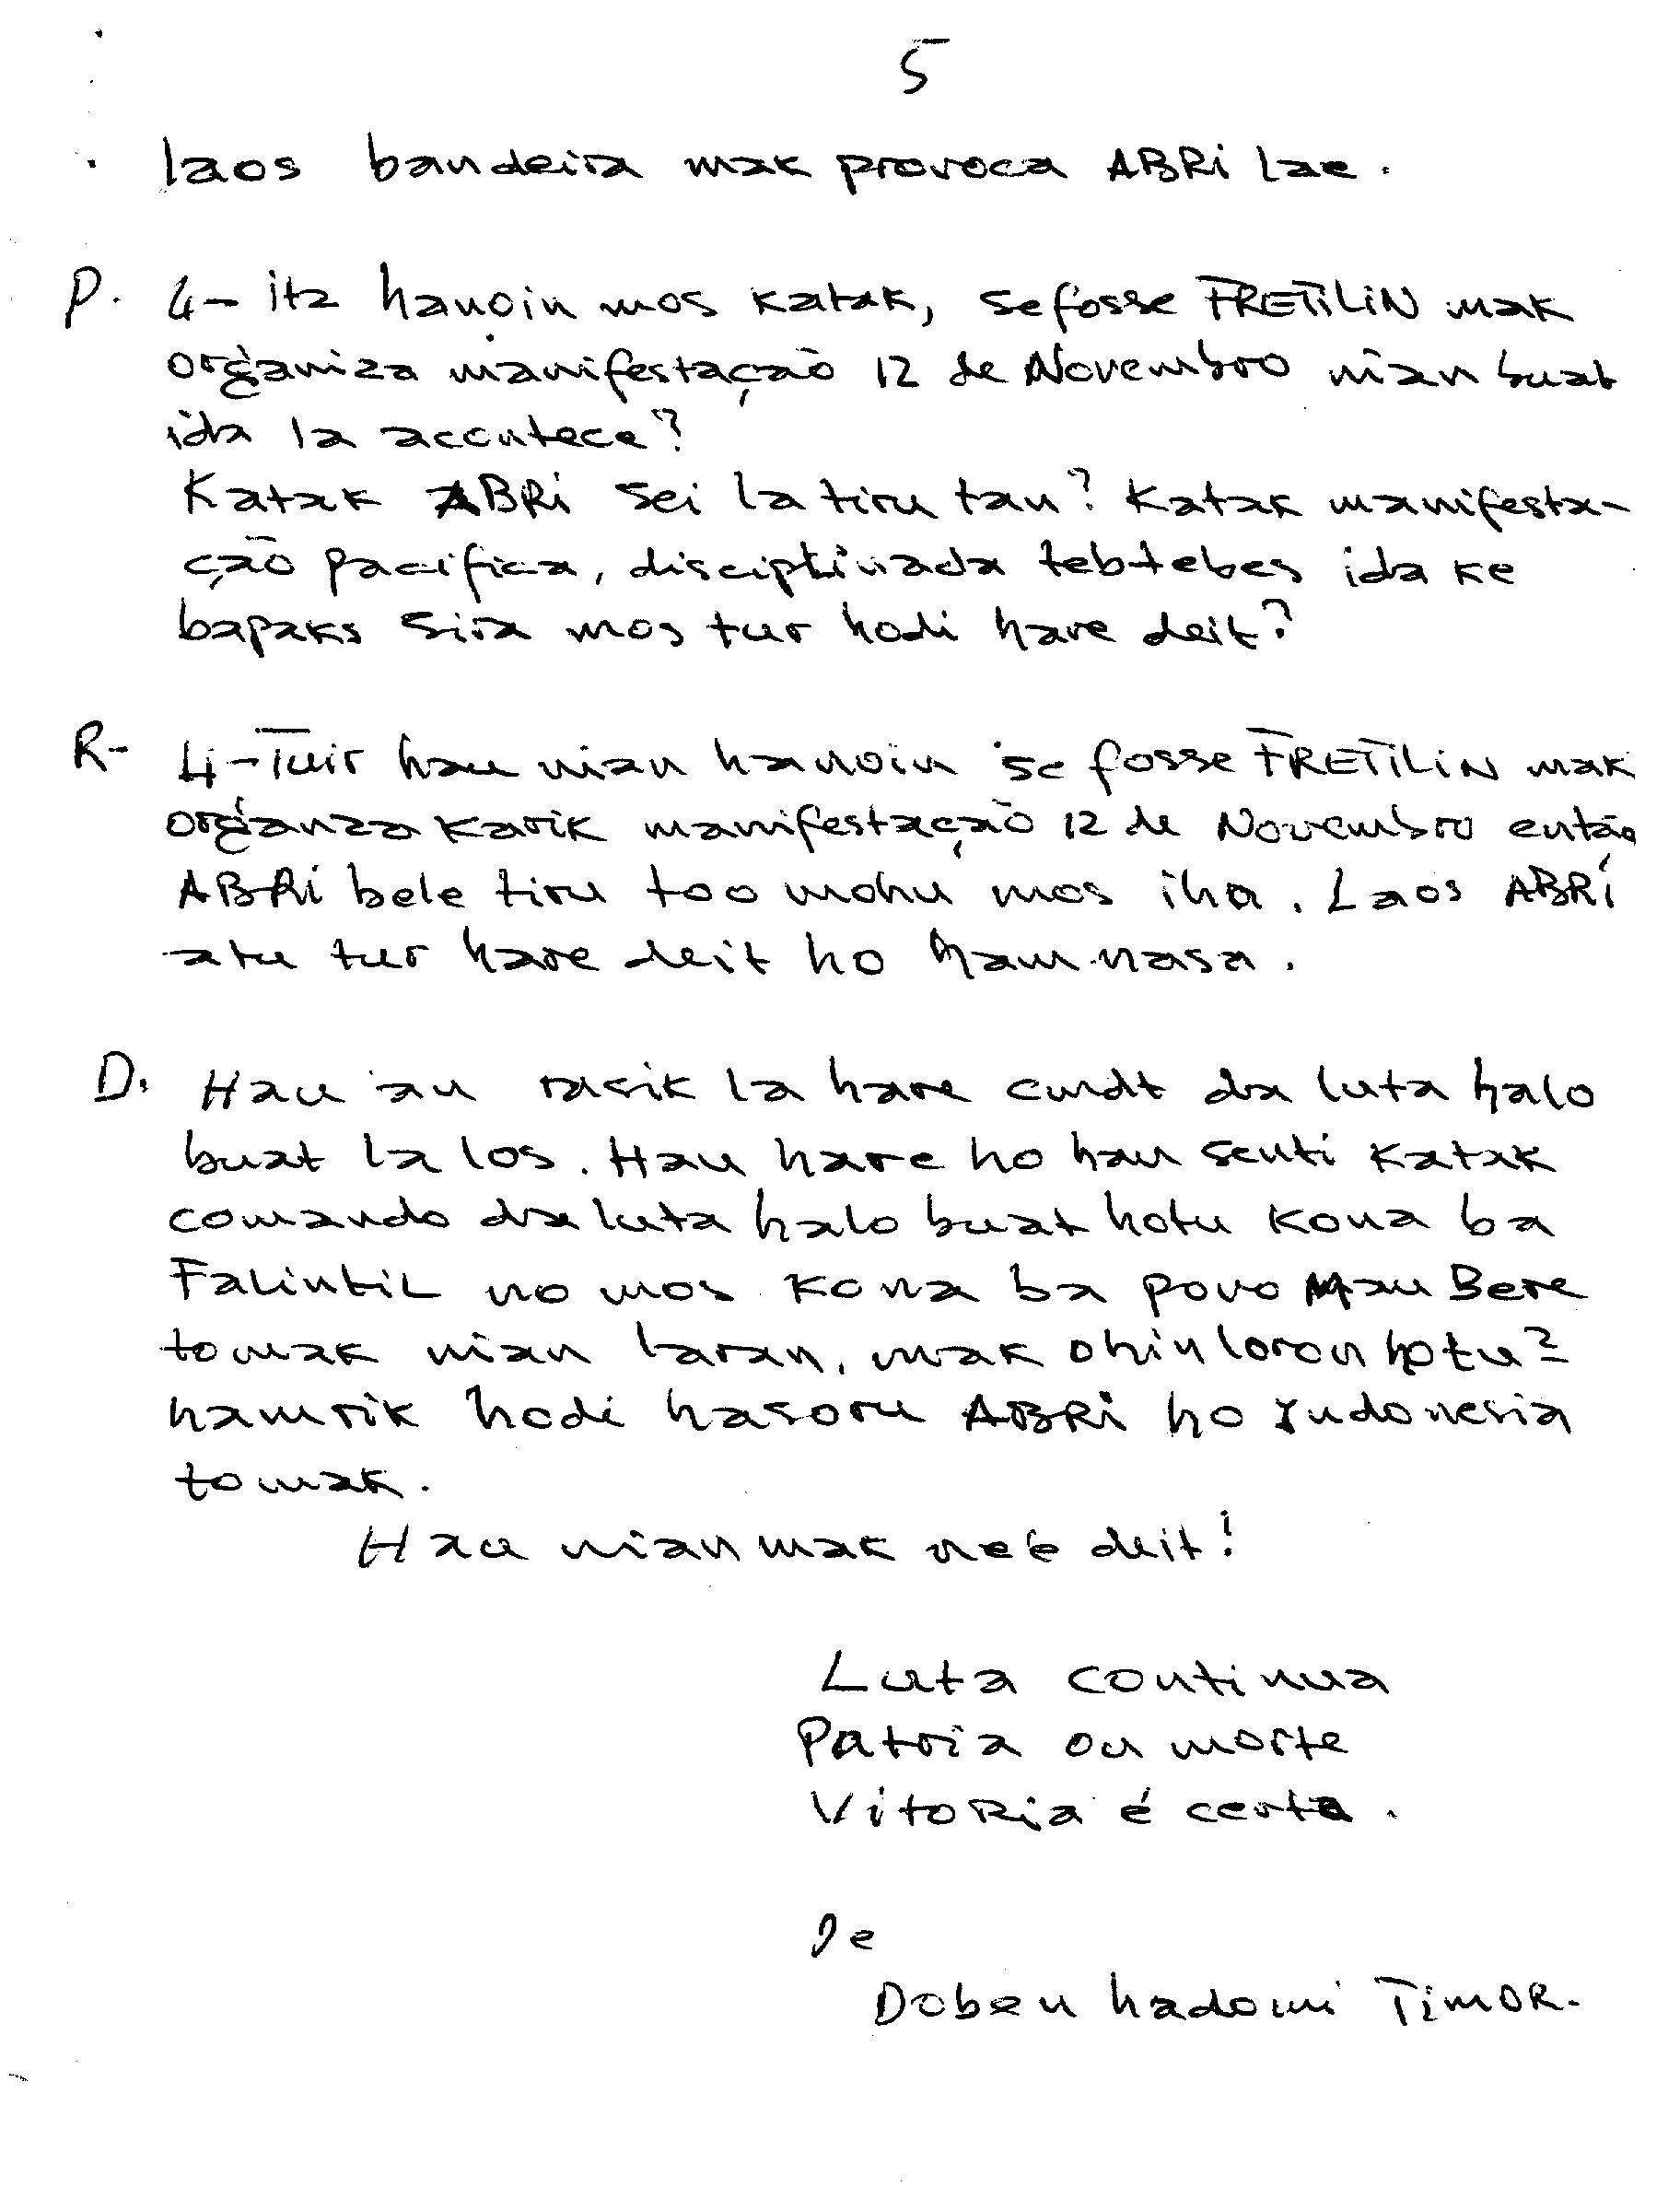 5
laos bandeira mak provoca ABRi lae.
P. 4- ita hanoin mos katak, se fosse FRETiLiN mak
organiza manifestação 12 de Novembro nian buat
ida la acontece?
Katak ABRi sei la tiru tan? Katak manifesta-
ção pacifica, disciplinada tebtebes ida ke
bapaks sira mos tur hodi hare deit?
R- 4- Tuir hau nian hanoin se fosse FRETiLiN mak
organza karik manifestação 12 de Novembro então
ABRi bele tiru too mohu mos iha. Laos ABRi
atu tur hare deit ho hamnasa.
D. Hau an rasik la hare cmdt da luta halo
buat la los. Hau hare ho hau senti katak
comando da luta halo buat hotu kona ba
FalintiL no mos kona ba povo Mau Bere
tomak nian laran, mak ohin loron hotu2
hamrik hodi hasoru ABRi ho Indonesia
tomak.
Hau nian mak ne'e deit!
Luta continua
Patria ou morte
VitoRia é certa.
De
Doben hadomi TimOR.